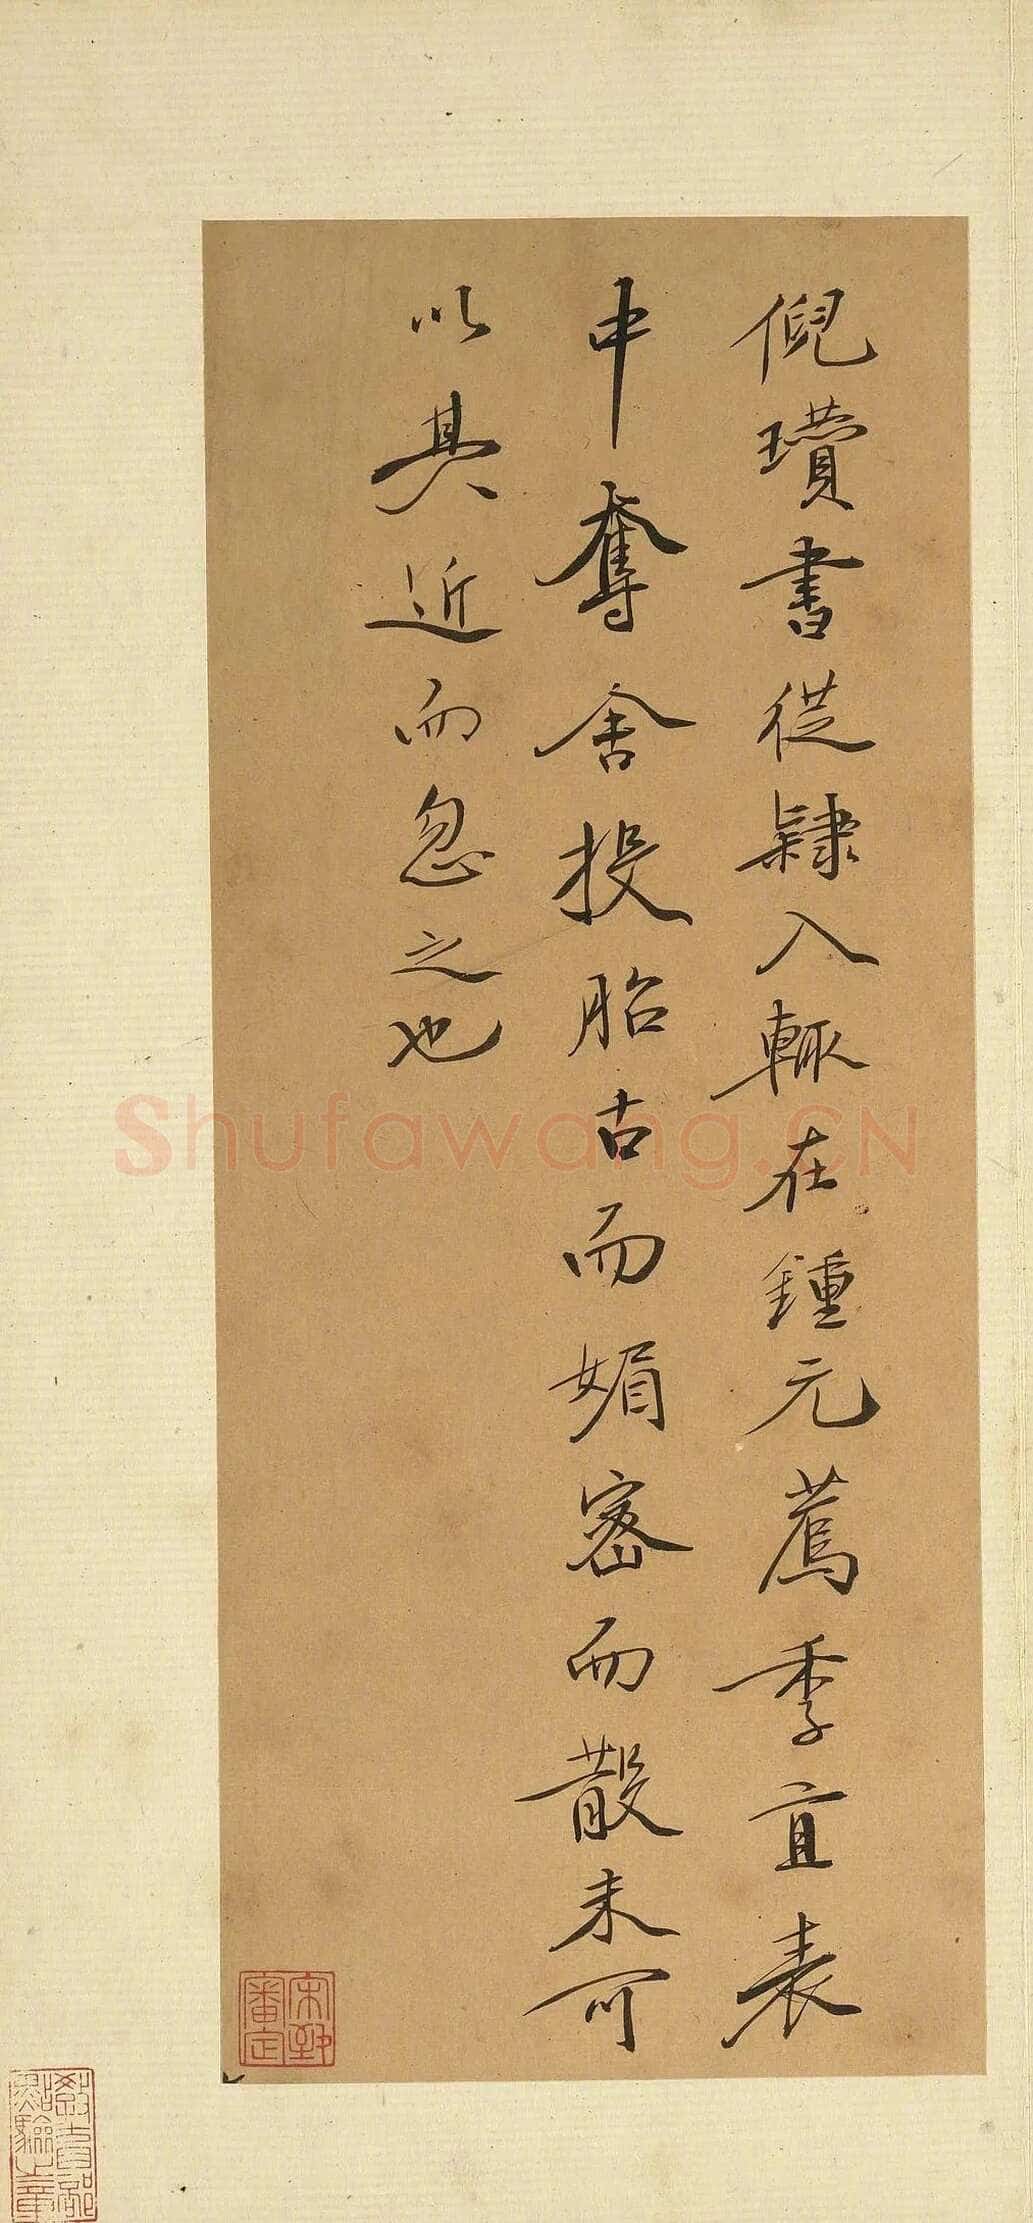 倪瓚書從隸入輒在鍾元薦季直表
中奪舍投胎古而媚密而散未可
以其近而忽之也
宋犖審定
教育部點驗之章
Shufawang.CN